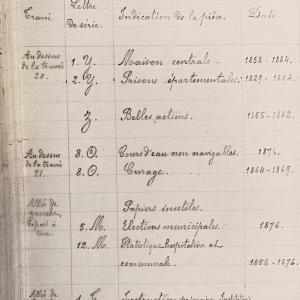 Travée. Lettre de série. Indication de la pièce. Date.
Au dessus de la travée 20. 1. Y. Maison centrale. 1858-1884.
2. Y. Prisons départementales. 1829-1884.
Z. Belles actions. 1855-1882.
Au dessus de la travée 21. 8. O. Cours d'eau non navigables. 1876.
8. O. Curage. 1864-1869.
Allée de gauche,
Papiers inutiles.
5. M. Elections municipales. 1876.
12. M. Statistique hospitalière et
communale. 1856-1876.
Allée de